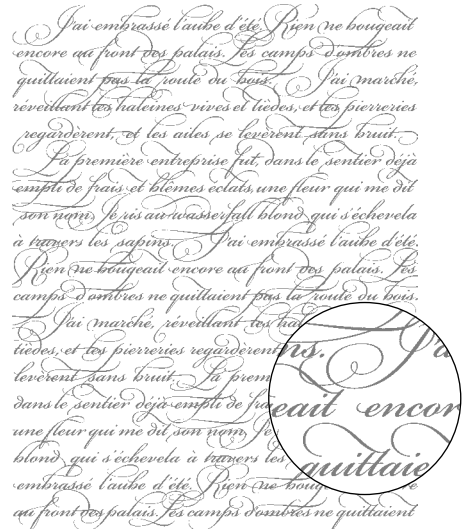 J'ai embrassé l'aube d'été. Rien ne bougeait
encore au front des palais. Les camps d'ombres ne
quittaient pas la route du bois. J'ai marché,
réveillant les haleines vives et tièdes, et les pierreries
regardèrent, et les ailes se levèrent sans bruit.
La première entreprise fut, dans le sentier déjà
empli de frais et blêmes éclats, une fleur qui me dit
son nom. Je ris au wasserfall blond qui s'échevela
à travers les sapins. J'ai embrassé l'aube d'été.
Rien ne bougeait encore au front des palais. Les
camps d'ombres ne quittaient pas la route du bois.
J'ai marché, réveillant les hal
tièdes, et les pierreries regardèrent
levèrent sans bruit. La prem
dans le sentier déjà empli de fra
une fleur qui me dit son nom. Je
blond qui s'échevela à travers les
embrassé l'aube d'été. Rien ne boug re
au front des palais. Les camps d'ombres ne quittaient
ns. J'a
eait encor
quittaie